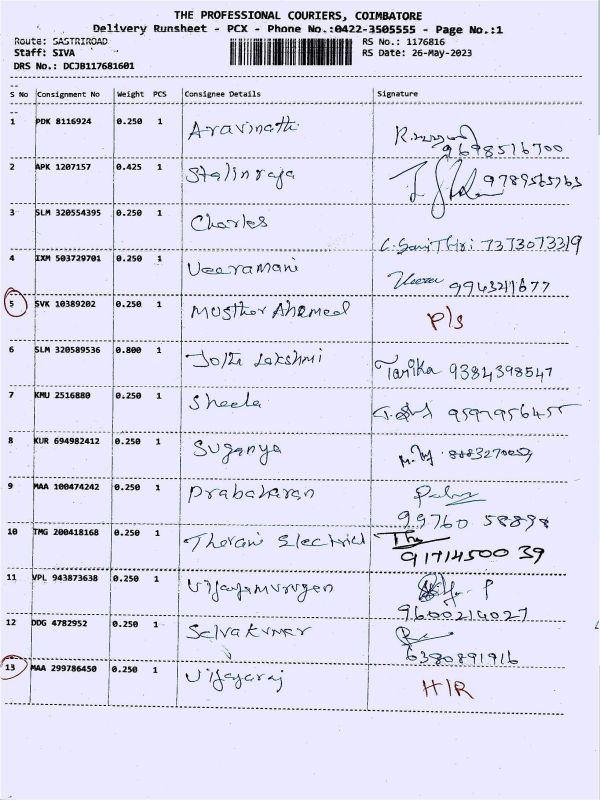 THE PROFESSIONAL COURIERS, COIMBATORE
Delivery Runsheet - PCX - Phone No.:0422-3505555 - Page No.:1
Route: SASTRIROAD RS No.: 1176816
Staff: SIVA RS Date: 26-May-2023
DRS No.: DCJB117681601
S No Consignment No Weight PCS Consignee Details Signature
1 PDK 8116924 0.250 1 Aravinath
9698516700
2 APK 1207157 0.425 1 Stalinraja 9789565763
3 SLM 320554395 0.250 1 Charles
7373073319
4 IXM 503729701 0.250 1 Veeramani
9943211677
5 SVK 10389202 0.250 1 Ahamed P/s
6 SLM 320589536 0.800 1 Jothi Lakshmi Tarika 9384398547
7 KMU 2516880 0.250 1 Sheela
8 KUR 694982412 0.250 1 Suganya
9 MAA 100474242 0.250 1 Prabakaran
99760 58898
10 TMG 200418168 0.250 1 Electrical
91714500 39
11 VPL 943873638 0.250 1 Vijayamurugan
9600214027
12 DDG 4782952 0.250 1 Selvakumar
6380891916
13 MAA 299786450 0.250 1 Vijayaraj H/R